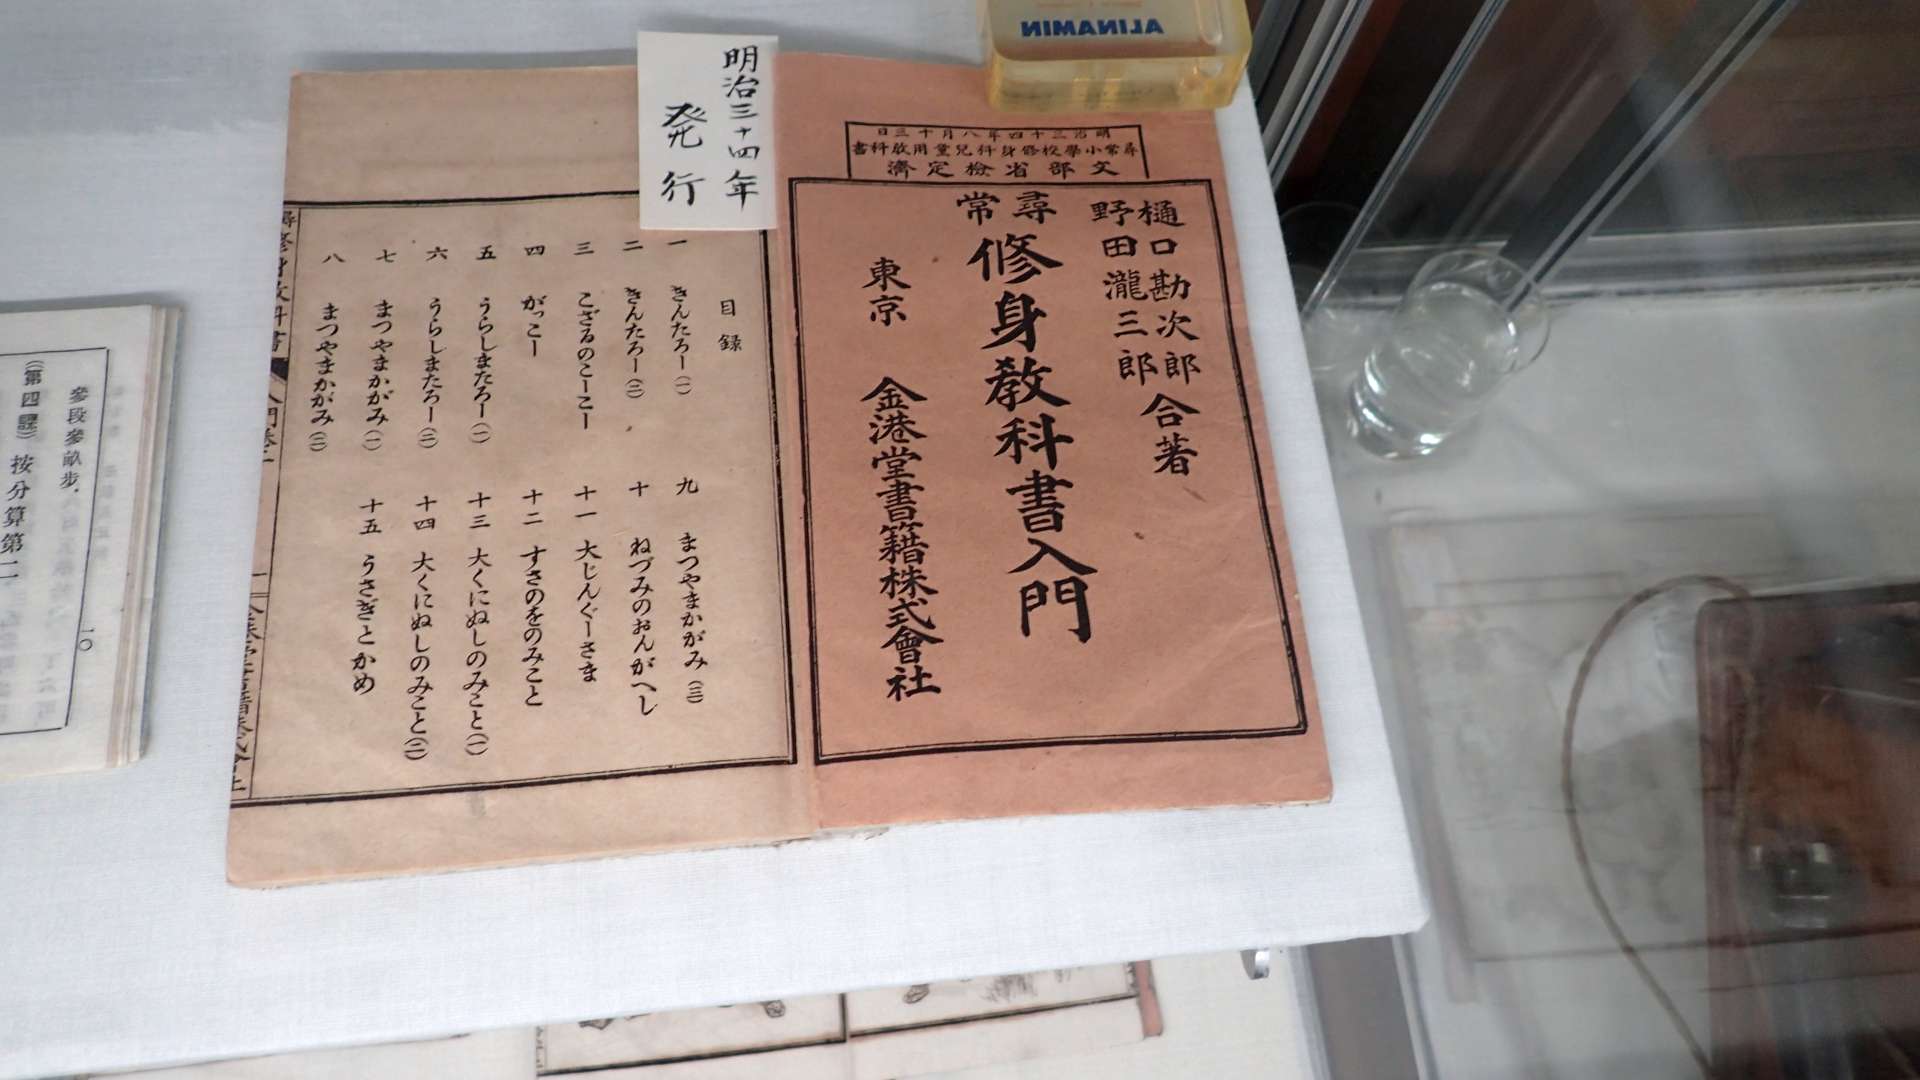 明治三十四年
発行
ALINAMIN
明治三十四年八月十三日
尋常小學校修身科兒童用敎科書
文部省檢定濟
樋口勘次郎
野田瀧三郎
合著
尋常
修身敎科書入門
東京 金港堂書籍株式會社
目録
一 きんたろー(一)
二 きんたろー(二)
三 こざるのこーこー
四 がっこー
五 うらしまたろー(一)
六 うらしまたろー(二)
七 まつやまかがみ(一)
八 まつやまかがみ(二)
九 まつやまかがみ(三)
十 ねづみのおんがへし
十一 大じんぐーさま
十二 すさのをのみこと
十三 大くにぬしのみこと(一)
十四 大くにぬしのみこと(二)
十五 うさぎとかめ
參段參畝步、
(第四課) 按分算第二
一〇